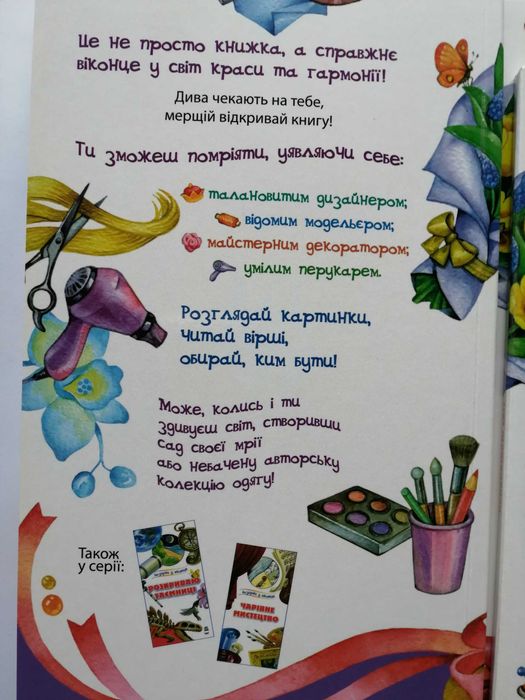 Це не просто книжка, а справжнє
віконце у світ краси та гармонії!
Дива чекають на тебе,
мерщій відкривай книгу!
Ти зможеш помріяти, уявляючи себе:
талановитим дизайнером;
відомим модельєром;
майстерним декоратором;
умілим перукарем.
Розглядай картинки,
читай вірші,
обирай, ким бути!
Може, колись і ти
здивуєш світ, створивши
сад своєї мрії
або небачену авторську
колекцію одягу!
Також
у серії:
РОЗКРИВАЮ
ТАЄМНИЦЕ
ЧАРІВНЕ
МИСТЕЦТВО